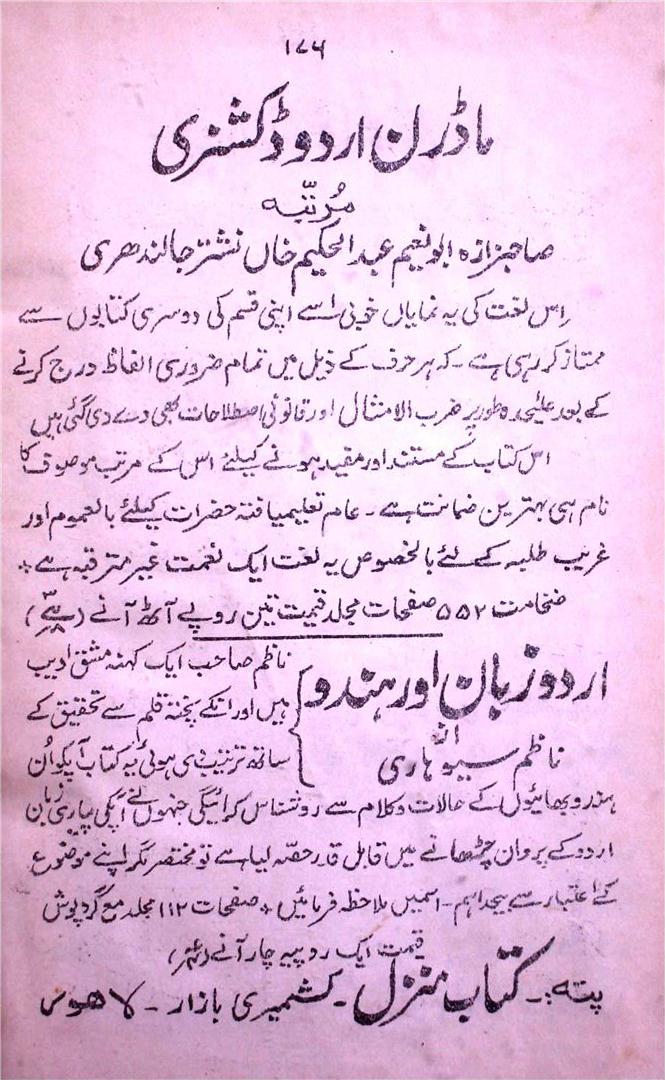 ۱۷۶
ماڈرن اردو ڈکشنری
مُرتّبہ
صاحبزادہ ابو نعیم عبد الحکیم خاں نشتر جالندھری
اِس لغت کی یہ نمایاں خوبی اسے اپنی قسم کی دوسری کتابوں سے
ممتاز کر رہی ہے۔ کہ ہر حرف کے ذیل میں تمام ضروری الفاظ درج کرنے
کے بعد علیٰحدہ طور پر ضرب الامثال اور قانونی اصطلاحات بھی دے دی گئی ہیں
اس کتاب کے مستند اور مفید ہونے کیلئے اس کے مرتب موصوف کا
نام ہی بہترین ضمانت ہے۔ عام تعلیمیافتہ حضرات کیلئے بالعموم اور
غریب طلبہ کے لئے بالخصوص یہ لغت ایک نعمت غیر مترقبہ ہے ٭
ضخامت ۵۵۲ صفحات مجلد قیمت تین روپے آٹھ آنے
اردو زبان اور ہندو
از
ناظم سیوہاروی
ناظم صاحب ایک کہنہ مشق ادیب
ہیں اور انکے پختہ قلم سے تحقیق کے
ساتھ ترتیب دی ہوئی یہ کتاب آپکو اُن
ہندو بھائیوں کے حالات و کلام سے روشناس کرائیگی جنہوں نے آپکی پیاری زبان
اردو کے پروان چڑھانے میں قابل قدر حصّہ لیا ہے تو مختصر مگر اپنے موضوع
کے اعتبار سے بیحد اہم۔ اسمیں ملاحظہ فرمائیں ٭ صفحات ۱۱۲ مجلد مع گردپوش
قیمت ایک روپیہ چار آنے
پتہ:۔ کتاب منزل۔ کشمیری بازار۔ لاهور